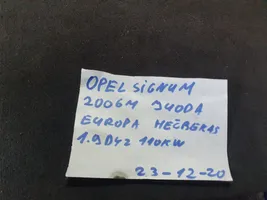 OPEL SIGNUM
2006M JUODA
EUROPA HEČBEKAS
1.9DYZ 110KW
23-12-20